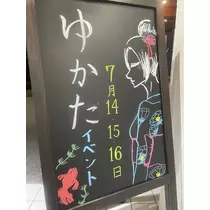 ゆかた
イベント
7月14 15 16日